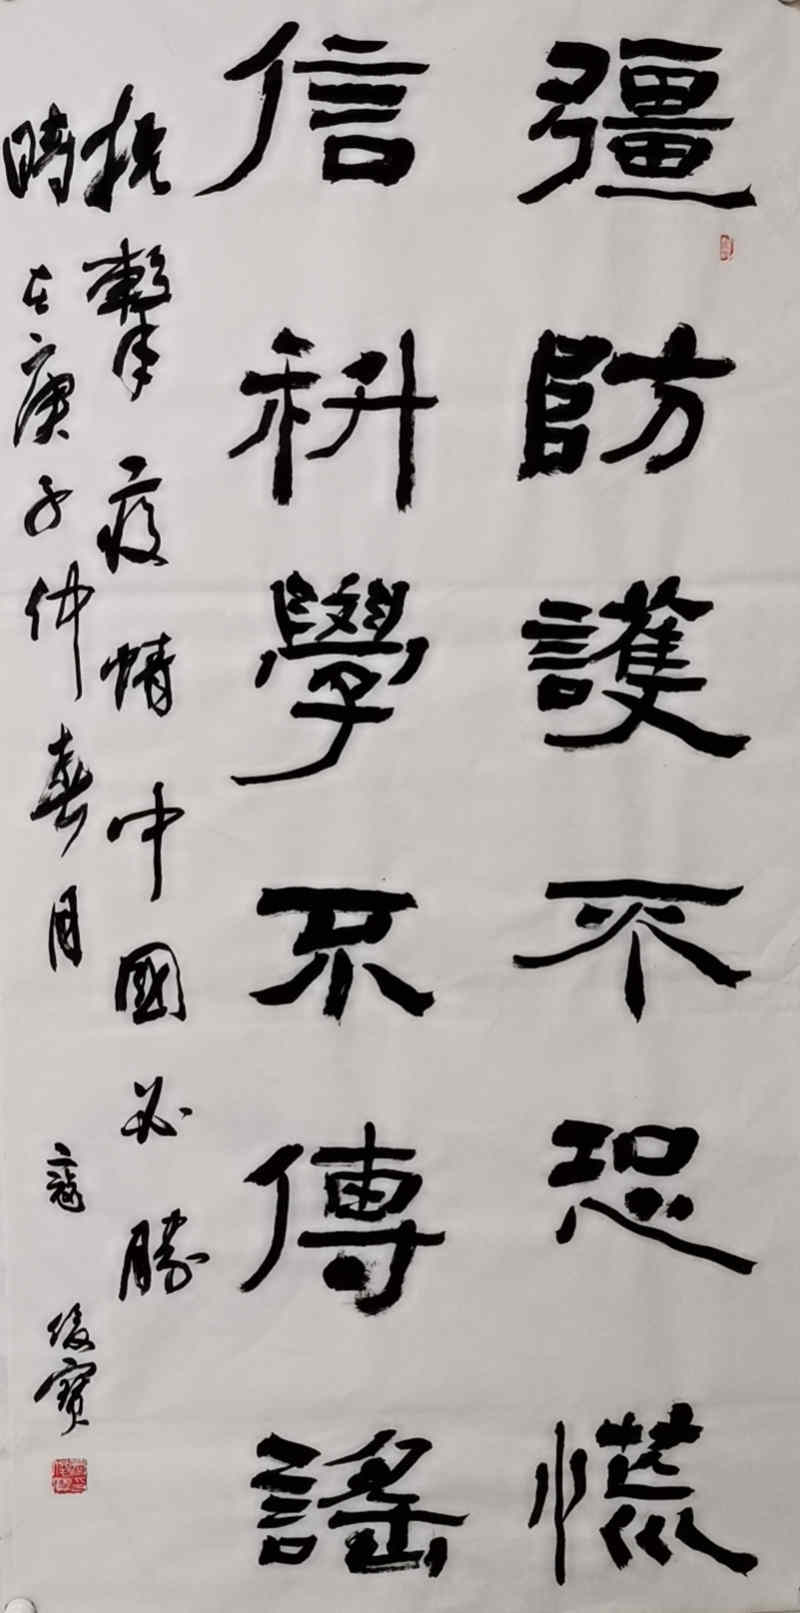 彊防護不恐慌
信科學不傳謠
抗擊疫情中國必勝
時在庚子仲春月 寇俊寶